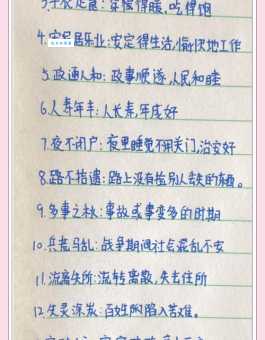 3.丰衣足食:穿得暖,吃得饱
4.安居乐业:安定得生活,愉快地工作
5.政通人和:政事顺遂,人民和睦
6.人寿年丰:人长寿,年成好
7.夜不闭户:夜里睡觉不用关门,治安好
8.路不拾遗:路上没有捡别人丢失的东西。
9.多事之秋:事故或事变多的时期
10.兵荒马乱:战争期间社会混乱不安
11.流离失所:流转离散,失去住所
12.生灵涂炭:百姓陷入苦难。